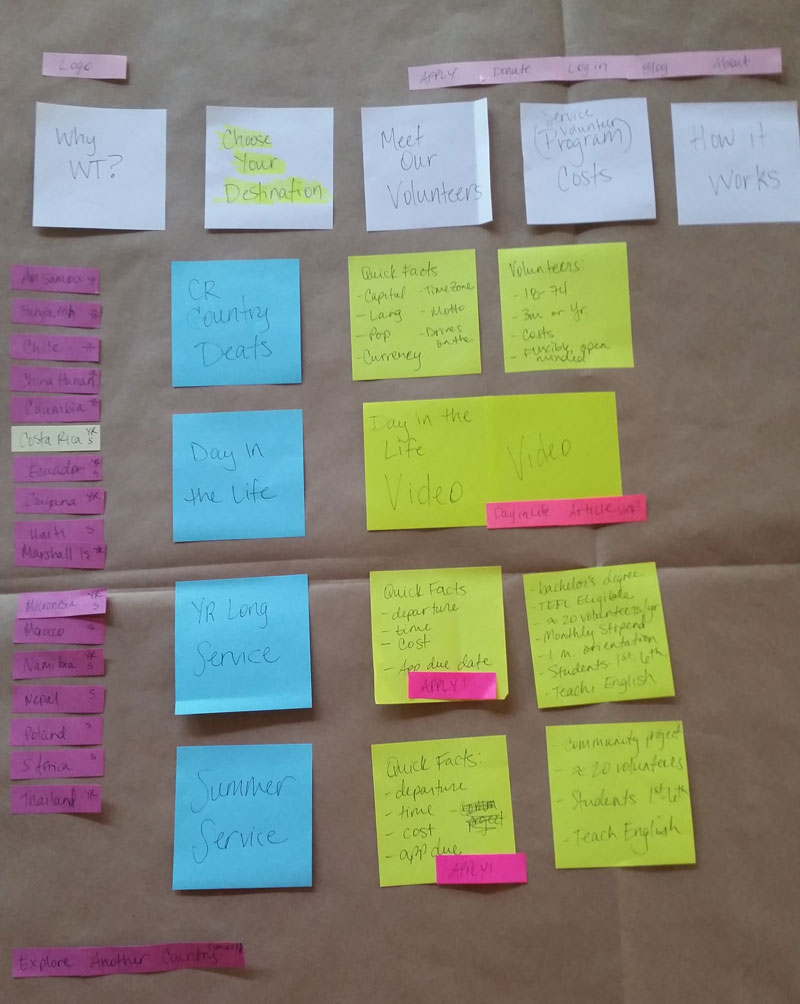 Logo
APPLY Donate Log in Blog About
Why
WT?
Choose
Your
Destination
Meet
Our
Volunteers
Service
Volunteer
(Program)
Costs
How it
Works
Am Samoa
Bangladesh
Chile
China Hunan
Columbia
Costa Rica YR S
Ecuador YR S
Guyana YR
Haiti S
Marshall Is YR
Micronesia YR S
Morocco
Namibia YR S
Nepal S
Poland S
S Africa S
Thailand YR
CR
Country
Deats
Quick Facts
- Capital - Time Zone
- Lang - Motto
- Pop - Drives
on the:
- Currency
Volunteers:
- 18-74
- 3m or yr.
- Costs
- Flexible, open
minded
Day in
the Life
Day in the
Life
Video
Video
Day in Life Article Link?
YR Long
Service
Quick Facts
- departure
- time
- cost
- App due date
APPLY!
- bachelor's degree
- TEFL Eligible
- ≈ 20 volunteers/yr
- Monthly Stipend
- 1 m. orientation
- Students 1st-6th
- Teach English
Summer
Service
Quick Facts:
- departure
- time
- cost
- app due
APPLY!
- Community project
- ≈ 20 volunteers
- Students 1st-6th
- Teach English
Explore Another Country